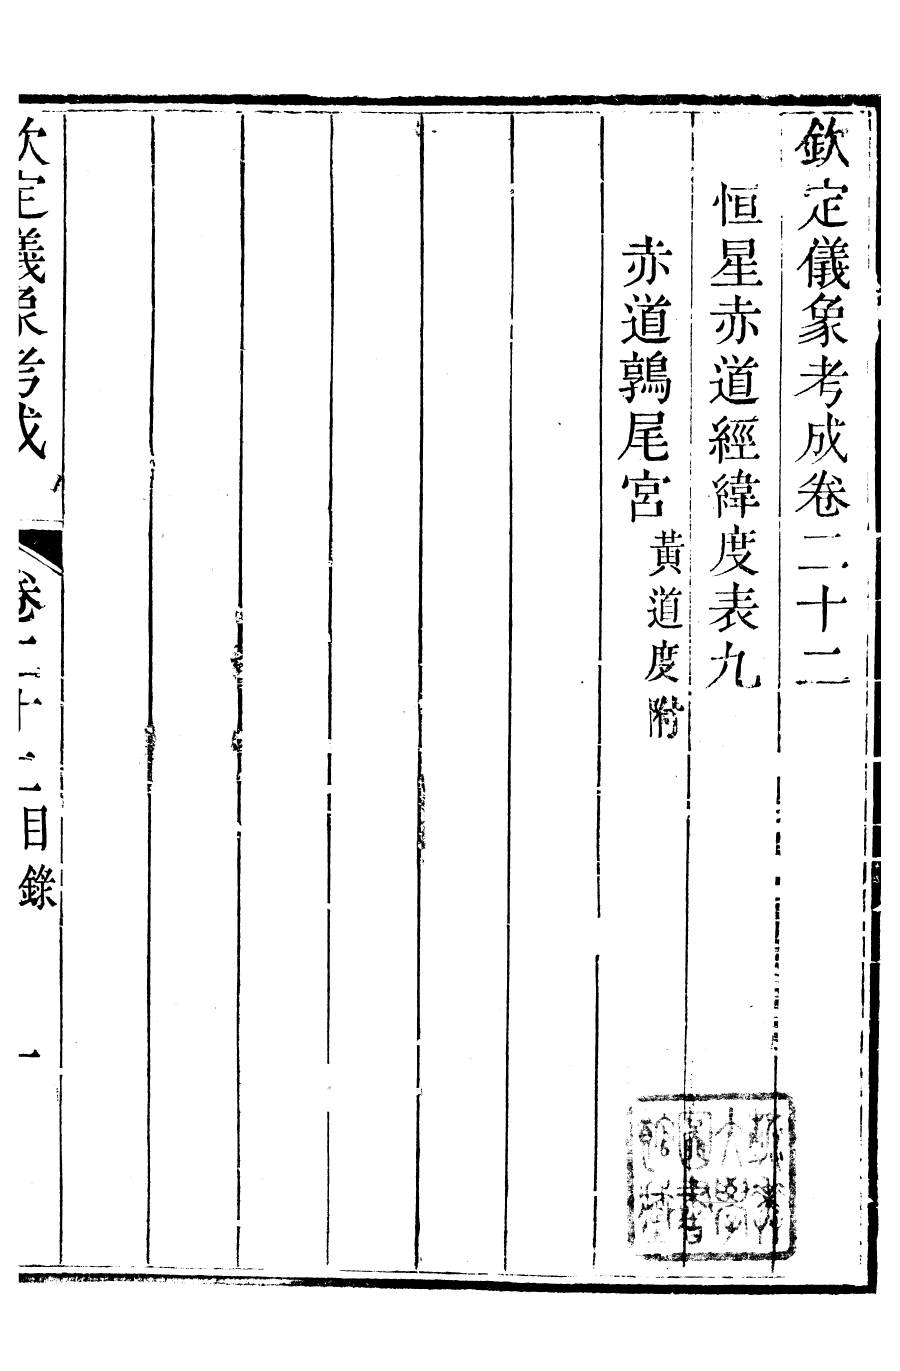 欽定儀象考成卷二十二
恒星赤道經緯度表九
赤道鶉尾宮黃道度附
欽定儀象考成 卷二十二目錄 一